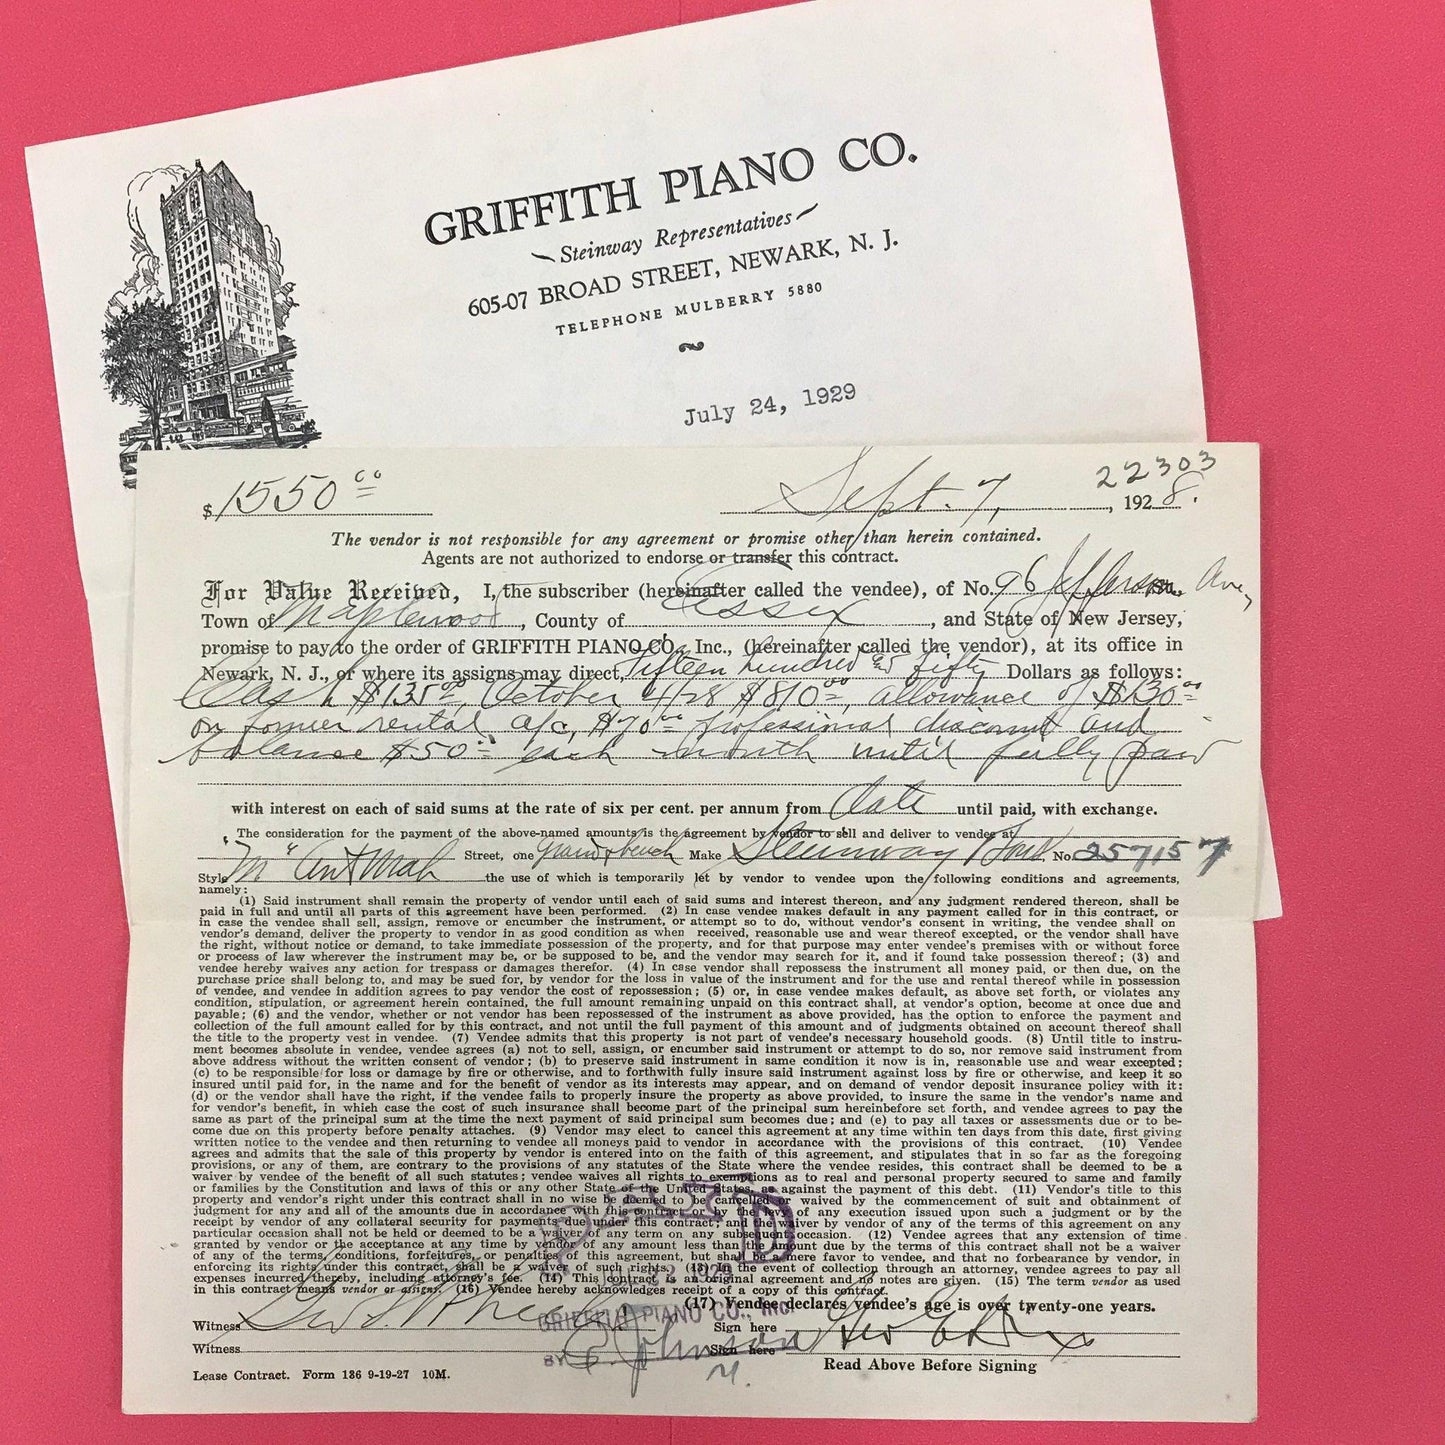 GRIFFITH PIANO CO.
Steinway Representatives
605-07 BROAD STREET, NEWARK, N. J.
TELEPHONE MULBERRY 5880
July 24, 1929
22303
$1550.00 Sept. 7, 1928.
The vendor is not responsible for any agreement or promise other than herein contained.
Agents are not authorized to endorse or transfer this contract.
For Value Received, I, the subscriber (hereinafter called the vendee), of No. 96 Jefferson Ave,
Town of Maplewood, County of Essex, and State of New Jersey,
promise to pay to the order of GRIFFITH PIANO CO., Inc., (hereinafter called the vendor), at its office in
Newark, N. J., or where its assigns may direct, Fifteen hundred and fifty Dollars as follows:
Cash $135.00, October 4/28 $810.00, allowance of $130.00
on former rental a/c, $70.00 professional discount and
balance $50.00 each month until fully paid
with interest on each of said sums at the rate of six per cent. per annum from date until paid, with exchange.
The consideration for the payment of the above-named amounts is the agreement by vendor to sell and deliver to vendee at
Street, one Grand & bench Make Steinway & Sons No. 257157
Style "M" Ant Mah the use of which is temporarily let by vendor to vendee upon the following conditions and agreements,
namely:
(1) Said instrument shall remain the property of vendor until each of said sums and interest thereon, and any judgment rendered thereon, shall be
paid in full and until all parts of this agreement have been performed. (2) In case vendee makes default in any payment called for in this contract, or
in case the vendee shall sell, assign, remove or encumber the instrument, or attempt so to do, without vendor's consent in writing, the vendee shall on
vendor's demand, deliver the property to vendor in as good condition as when received, reasonable use and wear thereof excepted, or the vendor shall have
the right, without notice or demand, to take immediate possession of the property, and for that purpose may enter vendee's premises with or without force
or process of law wherever the instrument may be, or be supposed to be, and the vendor may search for it, and if found take possession thereof; (3) and
vendee hereby waives any action for trespass or damages therefor. (4) In case vendor shall repossess the instrument all money paid, or then due, on the
purchase price shall belong to, and may be sued for, by vendor for the loss in value of the instrument and for the use and rental thereof while in possession
of vendee, and vendee in addition agrees to pay vendor the cost of repossession; (5) or, in case vendee makes default, as above set forth, or violates any
condition, stipulation, or agreement herein contained, the full amount remaining unpaid on this contract shall, at vendor's option, become at once due and
payable; (6) and the vendor, whether or not vendor has been repossessed of the instrument as above provided, has the option to enforce the payment and
collection of the full amount called for by this contract, and not until the full payment of this amount and of judgments obtained on account thereof shall
the title to the property vest in vendee. (7) Vendee admits that this property is not part of vendee's necessary household goods. (8) Until title to instru-
ment becomes absolute in vendee, vendee agrees (a) not to sell, assign, or encumber said instrument or attempt to do so, nor remove said instrument from
above address without the written consent of vendor; (b) to preserve said instrument in same condition it now is in, reasonable use and wear excepted;
(c) to be responsible for loss or damage by fire or otherwise, and to forthwith fully insure said instrument against loss by fire or otherwise, and keep it so
insured until paid for, in the name and for the benefit of vendor as its interests may appear, and on demand of vendor deposit insurance policy with it:
(d) or the vendor shall have the right, if the vendee fails to properly insure the property as above provided, to insure the same in the vendor's name and
for vendor's benefit, in which case the cost of such insurance shall become part of the principal sum hereinbefore set forth, and vendee agrees to pay the
same as part of the principal sum at the time the next payment of said principal sum becomes due; and (e) to pay all taxes or assessments due or to be-
come due on this property before penalty attaches. (9) Vendor may elect to cancel this agreement at any time within ten days from this date, first giving
written notice to the vendee and then returning to vendee all moneys paid to vendor in accordance with the provisions of this contract. (10) Vendee
agrees and admits that the sale of this property by vendor is entered into on the faith of this agreement, and stipulates that in so far as the foregoing
provisions, or any of them, are contrary to the provisions of any statutes of the State where the vendee resides, this contract shall be deemed to be a
waiver by vendee of the benefit of all such statutes; vendee waives all rights to exemptions as to real and personal property secured to same and family
or families by the Constitution and laws of this or any other State of the United States, as against the payment of this debt. (11) Vendor's title to this
property and vendor's right under this contract shall in no wise be deemed to be cancelled or waived by the commencement of suit and obtainment of
judgment for any and all of the amounts due in accordance with this contract, or by the levy of any execution issued upon such a judgment or by the
receipt by vendor of any collateral security for payments due under this contract; and the waiver by vendor of any of the terms of this agreement on any
particular occasion shall not be held or deemed to be a waiver of any term on any subsequent occasion. (12) Vendee agrees that any extension of time
granted by vendor or the acceptance at any time by vendor of any amount less than the amount due by the terms of this contract shall not be a waiver
of any of the terms, conditions, forfeitures, or penalties of this agreement, but shall be a mere favor to vendee, and that no forbearance by vendor, in
enforcing its rights under this contract, shall be a waiver of such rights. (13) In the event of collection through an attorney, vendee agrees to pay all
expenses incurred thereby, including attorney's fee. (14) This contract is an original agreement and no notes are given. (15) The term vendor as used
in this contract means vendor or assigns. (16) Vendee hereby acknowledges receipt of a copy of this contract.
(17) Vendee declares vendee's age is over twenty-one years.
PAID
1929
GRIFFITH PIANO CO., INC.
BY E. Johnson
M.
Witness Sign here
Witness Sign here
Read Above Before Signing
Lease Contract. Form 136 9-19-27 10M.